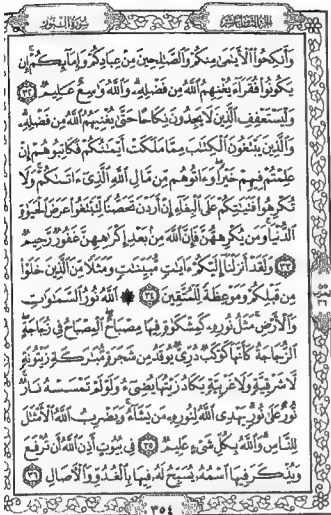 الجزء الثامن عشر سورة النور
وَأَنكِحُوا۟ ٱلْأَيَـٰمَىٰ مِنكُمْ وَٱلصَّـٰلِحِينَ مِنْ عِبَادِكُمْ وَإِمَآئِكُمْ ۚ إِن
يَكُونُوا۟ فُقَرَآءَ يُغْنِهِمُ ٱللَّهُ مِن فَضْلِهِۦ ۗ وَٱللَّهُ وَٰسِعٌ عَلِيمٌ ٣٢
وَلْيَسْتَعْفِفِ ٱلَّذِينَ لَا يَجِدُونَ نِكَاحًا حَتَّىٰ يُغْنِيَهُمُ ٱللَّهُ مِن فَضْلِهِۦ ۗ
وَٱلَّذِينَ يَبْتَغُونَ ٱلْكِتَـٰبَ مِمَّا مَلَكَتْ أَيْمَـٰنُكُمْ فَكَاتِبُوهُمْ إِنْ
عَلِمْتُمْ فِيهِمْ خَيْرًا ۖ وَءَاتُوهُم مِّن مَّالِ ٱللَّهِ ٱلَّذِىٓ ءَاتَىٰكُمْ ۚ وَلَا
تُكْرِهُوا۟ فَتَيَـٰتِكُمْ عَلَى ٱلْبِغَآءِ إِنْ أَرَدْنَ تَحَصُّنًا لِّتَبْتَغُوا۟ عَرَضَ ٱلْحَيَوٰةِ
ٱلدُّنْيَا ۚ وَمَن يُكْرِههُّنَّ فَإِنَّ ٱللَّهَ مِنۢ بَعْدِ إِكْرَٰهِهِنَّ غَفُورٌ رَّحِيمٌ
٣٣ وَلَقَدْ أَنزَلْنَآ إِلَيْكُمْ ءَايَـٰتٍ مُّبَيِّنَـٰتٍ وَمَثَلًا مِّنَ ٱلَّذِينَ خَلَوْا۟
مِن قَبْلِكُمْ وَمَوْعِظَةً لِّلْمُتَّقِينَ ٣٤ ۞ ٱللَّهُ نُورُ ٱلسَّمَـٰوَٰتِ
وَٱلْأَرْضِ ۚ مَثَلُ نُورِهِۦ كَمِشْكَوٰةٍ فِيهَا مِصْبَاحٌ ۖ ٱلْمِصْبَاحُ فِى زُجَاجَةٍ ۖ
ٱلزُّجَاجَةُ كَأَنَّهَا كَوْكَبٌ دُرِّىٌّ يُوقَدُ مِن شَجَرَةٍ مُّبَـٰرَكَةٍ زَيْتُونَةٍ
لَّا شَرْقِيَّةٍ وَلَا غَرْبِيَّةٍ يَكَادُ زَيْتُهَا يُضِىٓءُ وَلَوْ لَمْ تَمْسَسْهُ نَارٌ ۚ
نُّورٌ عَلَىٰ نُورٍ ۗ يَهْدِى ٱللَّهُ لِنُورِهِۦ مَن يَشَآءُ ۚ وَيَضْرِبُ ٱللَّهُ ٱلْأَمْثَـٰلَ
لِلنَّاسِ ۗ وَٱللَّهُ بِكُلِّ شَىْءٍ عَلِيمٌ ٣٥ فِى بُيُوتٍ أَذِنَ ٱللَّهُ أَن تُرْفَعَ
وَيُذْكَرَ فِيهَا ٱسْمُهُۥ يُسَبِّحُ لَهُۥ فِيهَا بِٱلْغُدُوِّ وَٱلْءَاصَالِ ٣٦
٣٥٤